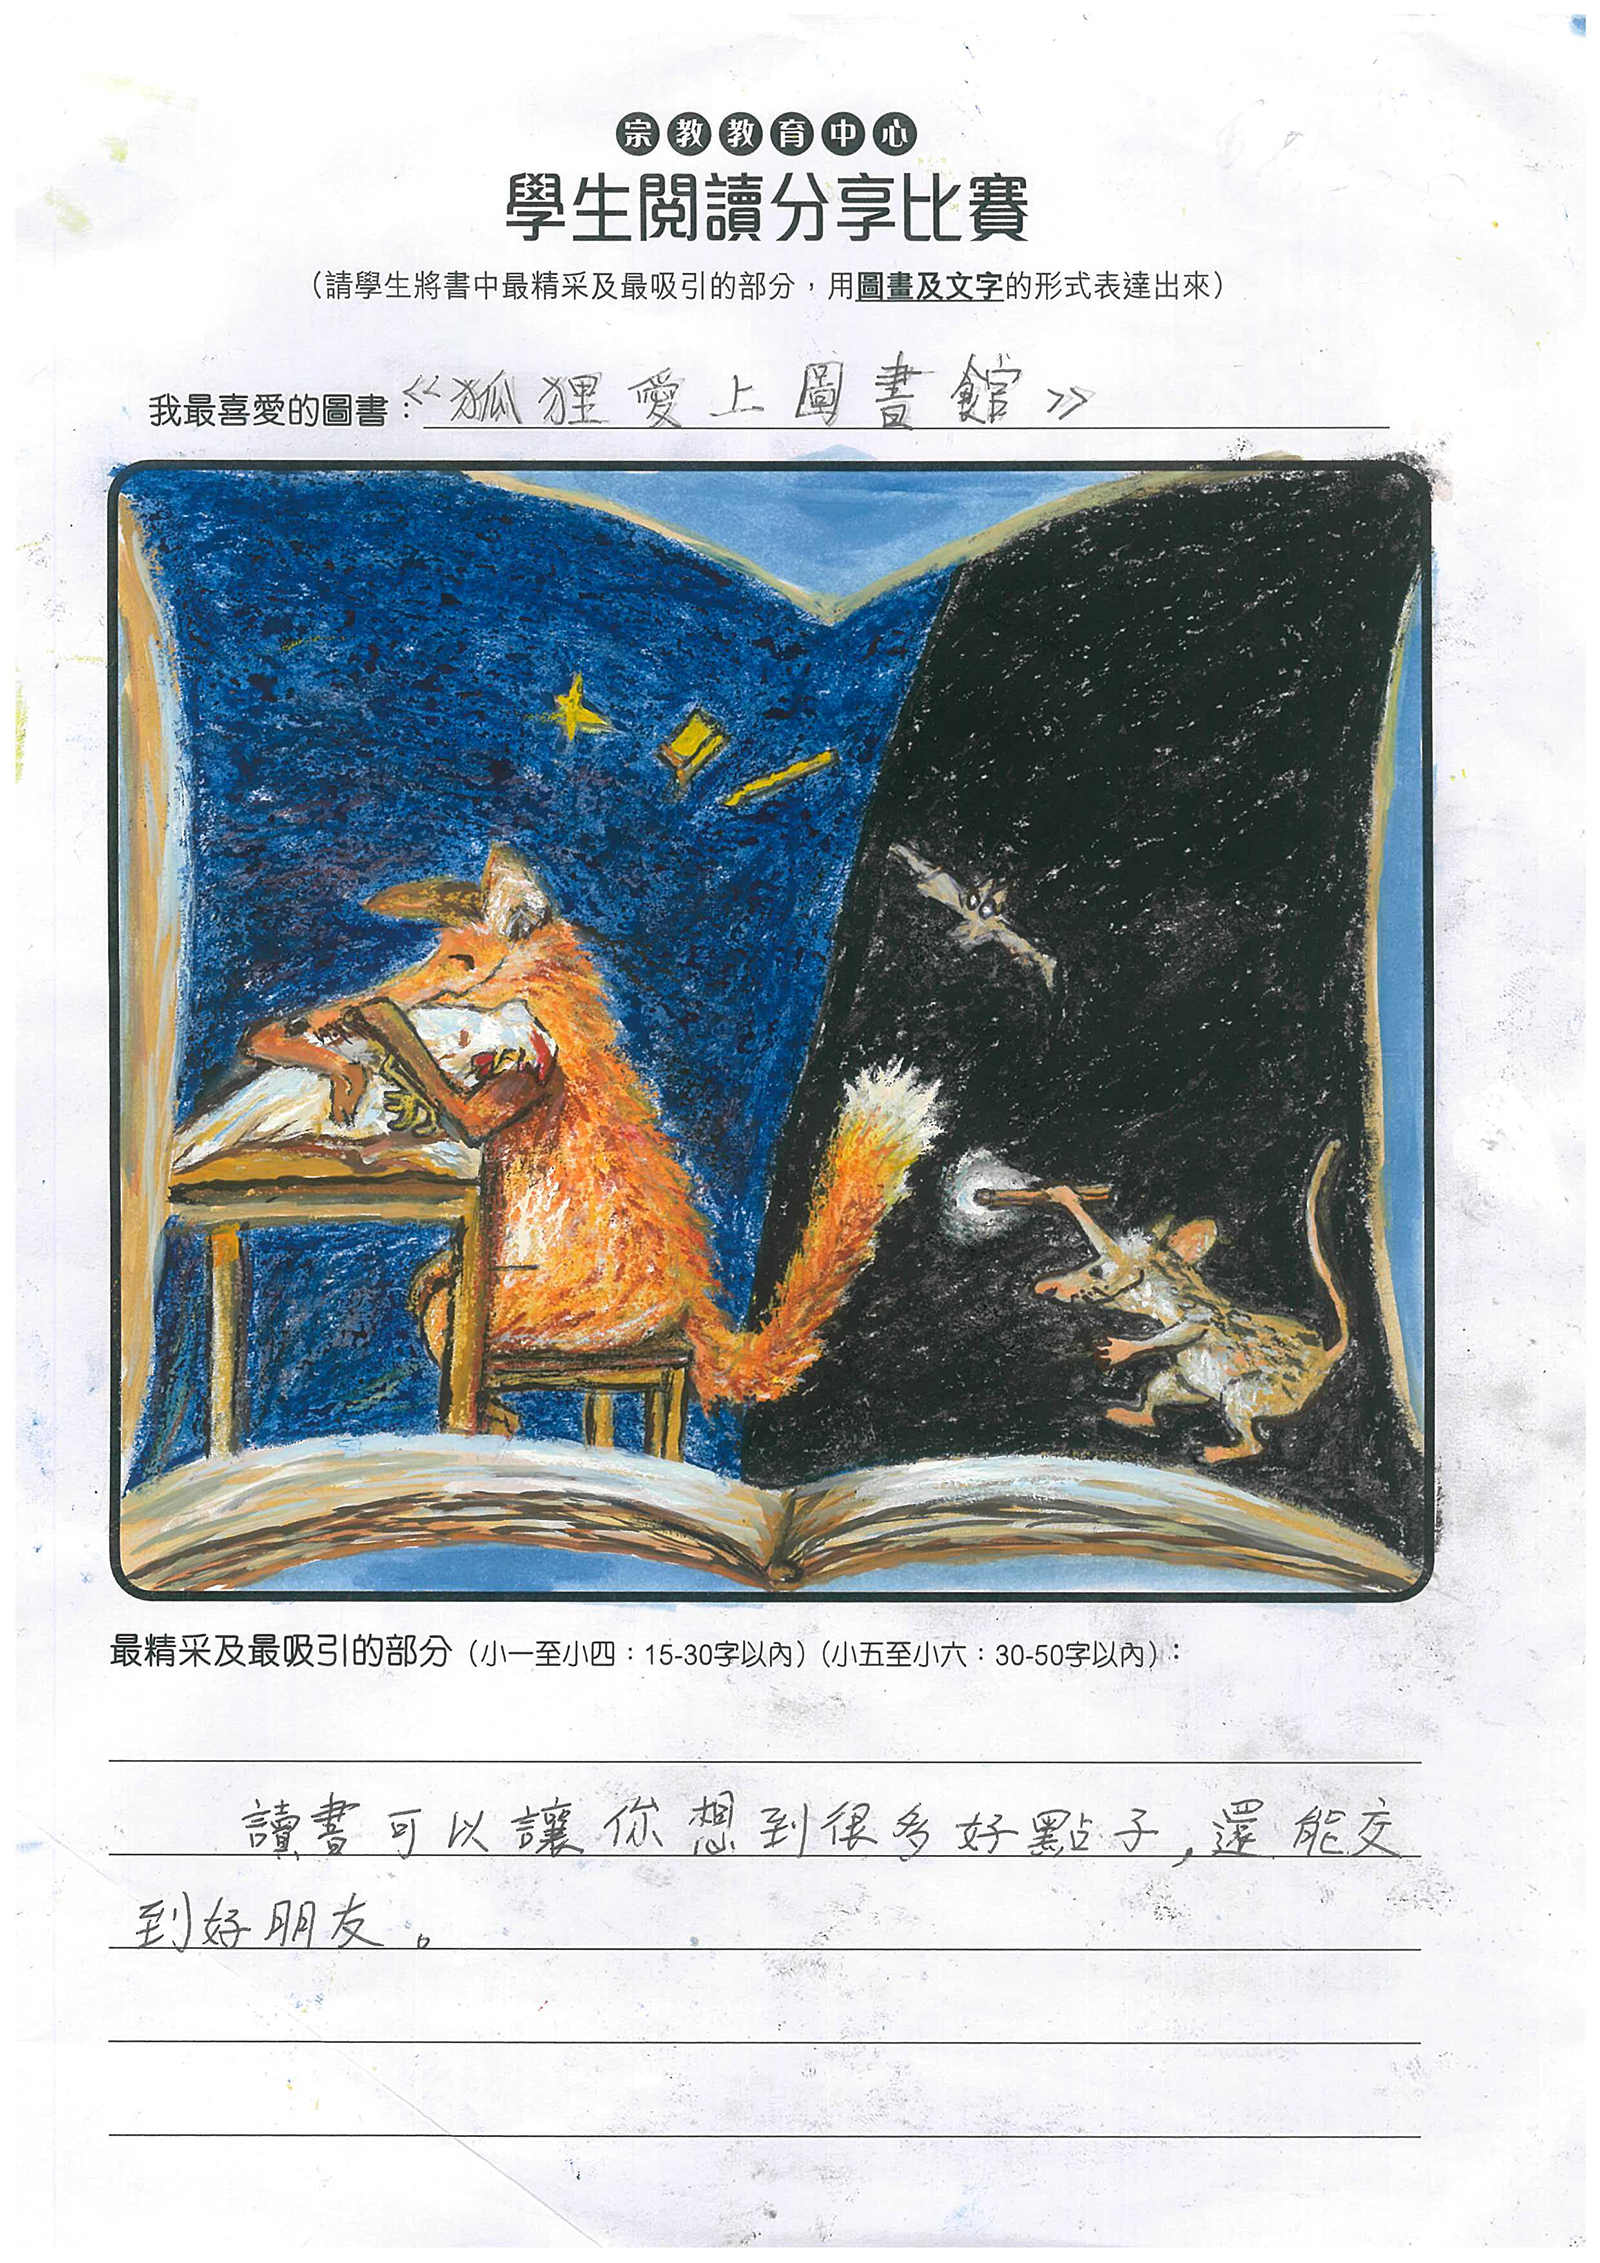 宗教教育中心
學生閱讀分享比賽
（請學生將書中最精采及最吸引的部分，用圖畫及文字的形式表達出來）
我最喜愛的圖書：《狐狸愛上圖書館》
最精采及最吸引的部分（小一至小四：15-30字以內）（小五至小六：30-50字以內）：
讀書可以讓你想到很多好點子，還能交
到好朋友。